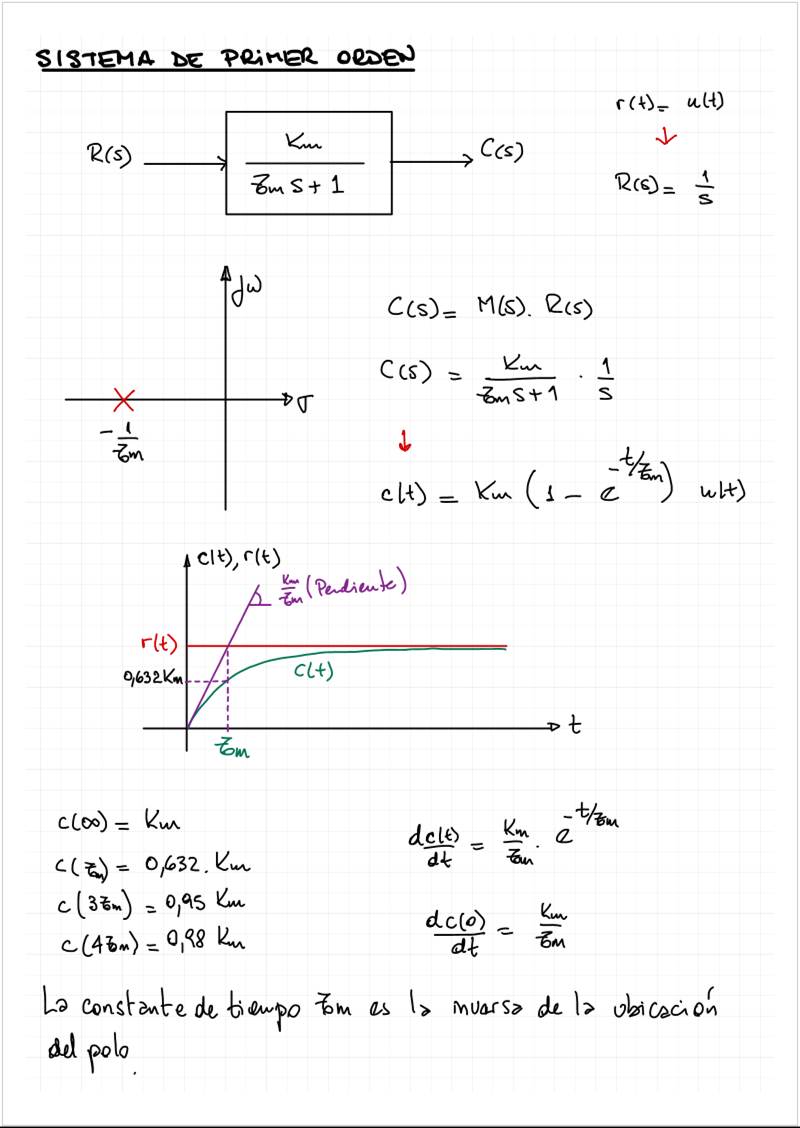 SISTEMA DE PRIMER ORDEN
r(t) = u(t)
↓
R(s) = 1/s
R(s) → Km / (τm s + 1) → C(s)
jω
σ
-1/τm
C(s) = M(s) . R(s)
C(s) = Km / (τm s + 1) · 1/s
↓
c(t) = Km (1 - e^(-t/τm)) u(t)
c(t), r(t)
Km/τm (Pendiente)
r(t)
0,632 Km
c(t)
t
τm
c(∞) = Km
c(τm) = 0,632 . Km
c(3τm) = 0,95 Km
c(4τm) = 0,98 Km
dc(t)/dt = Km/τm . e^(-t/τm)
dc(0)/dt = Km/τm
La constante de tiempo τm es la inversa de la ubicación
del polo.